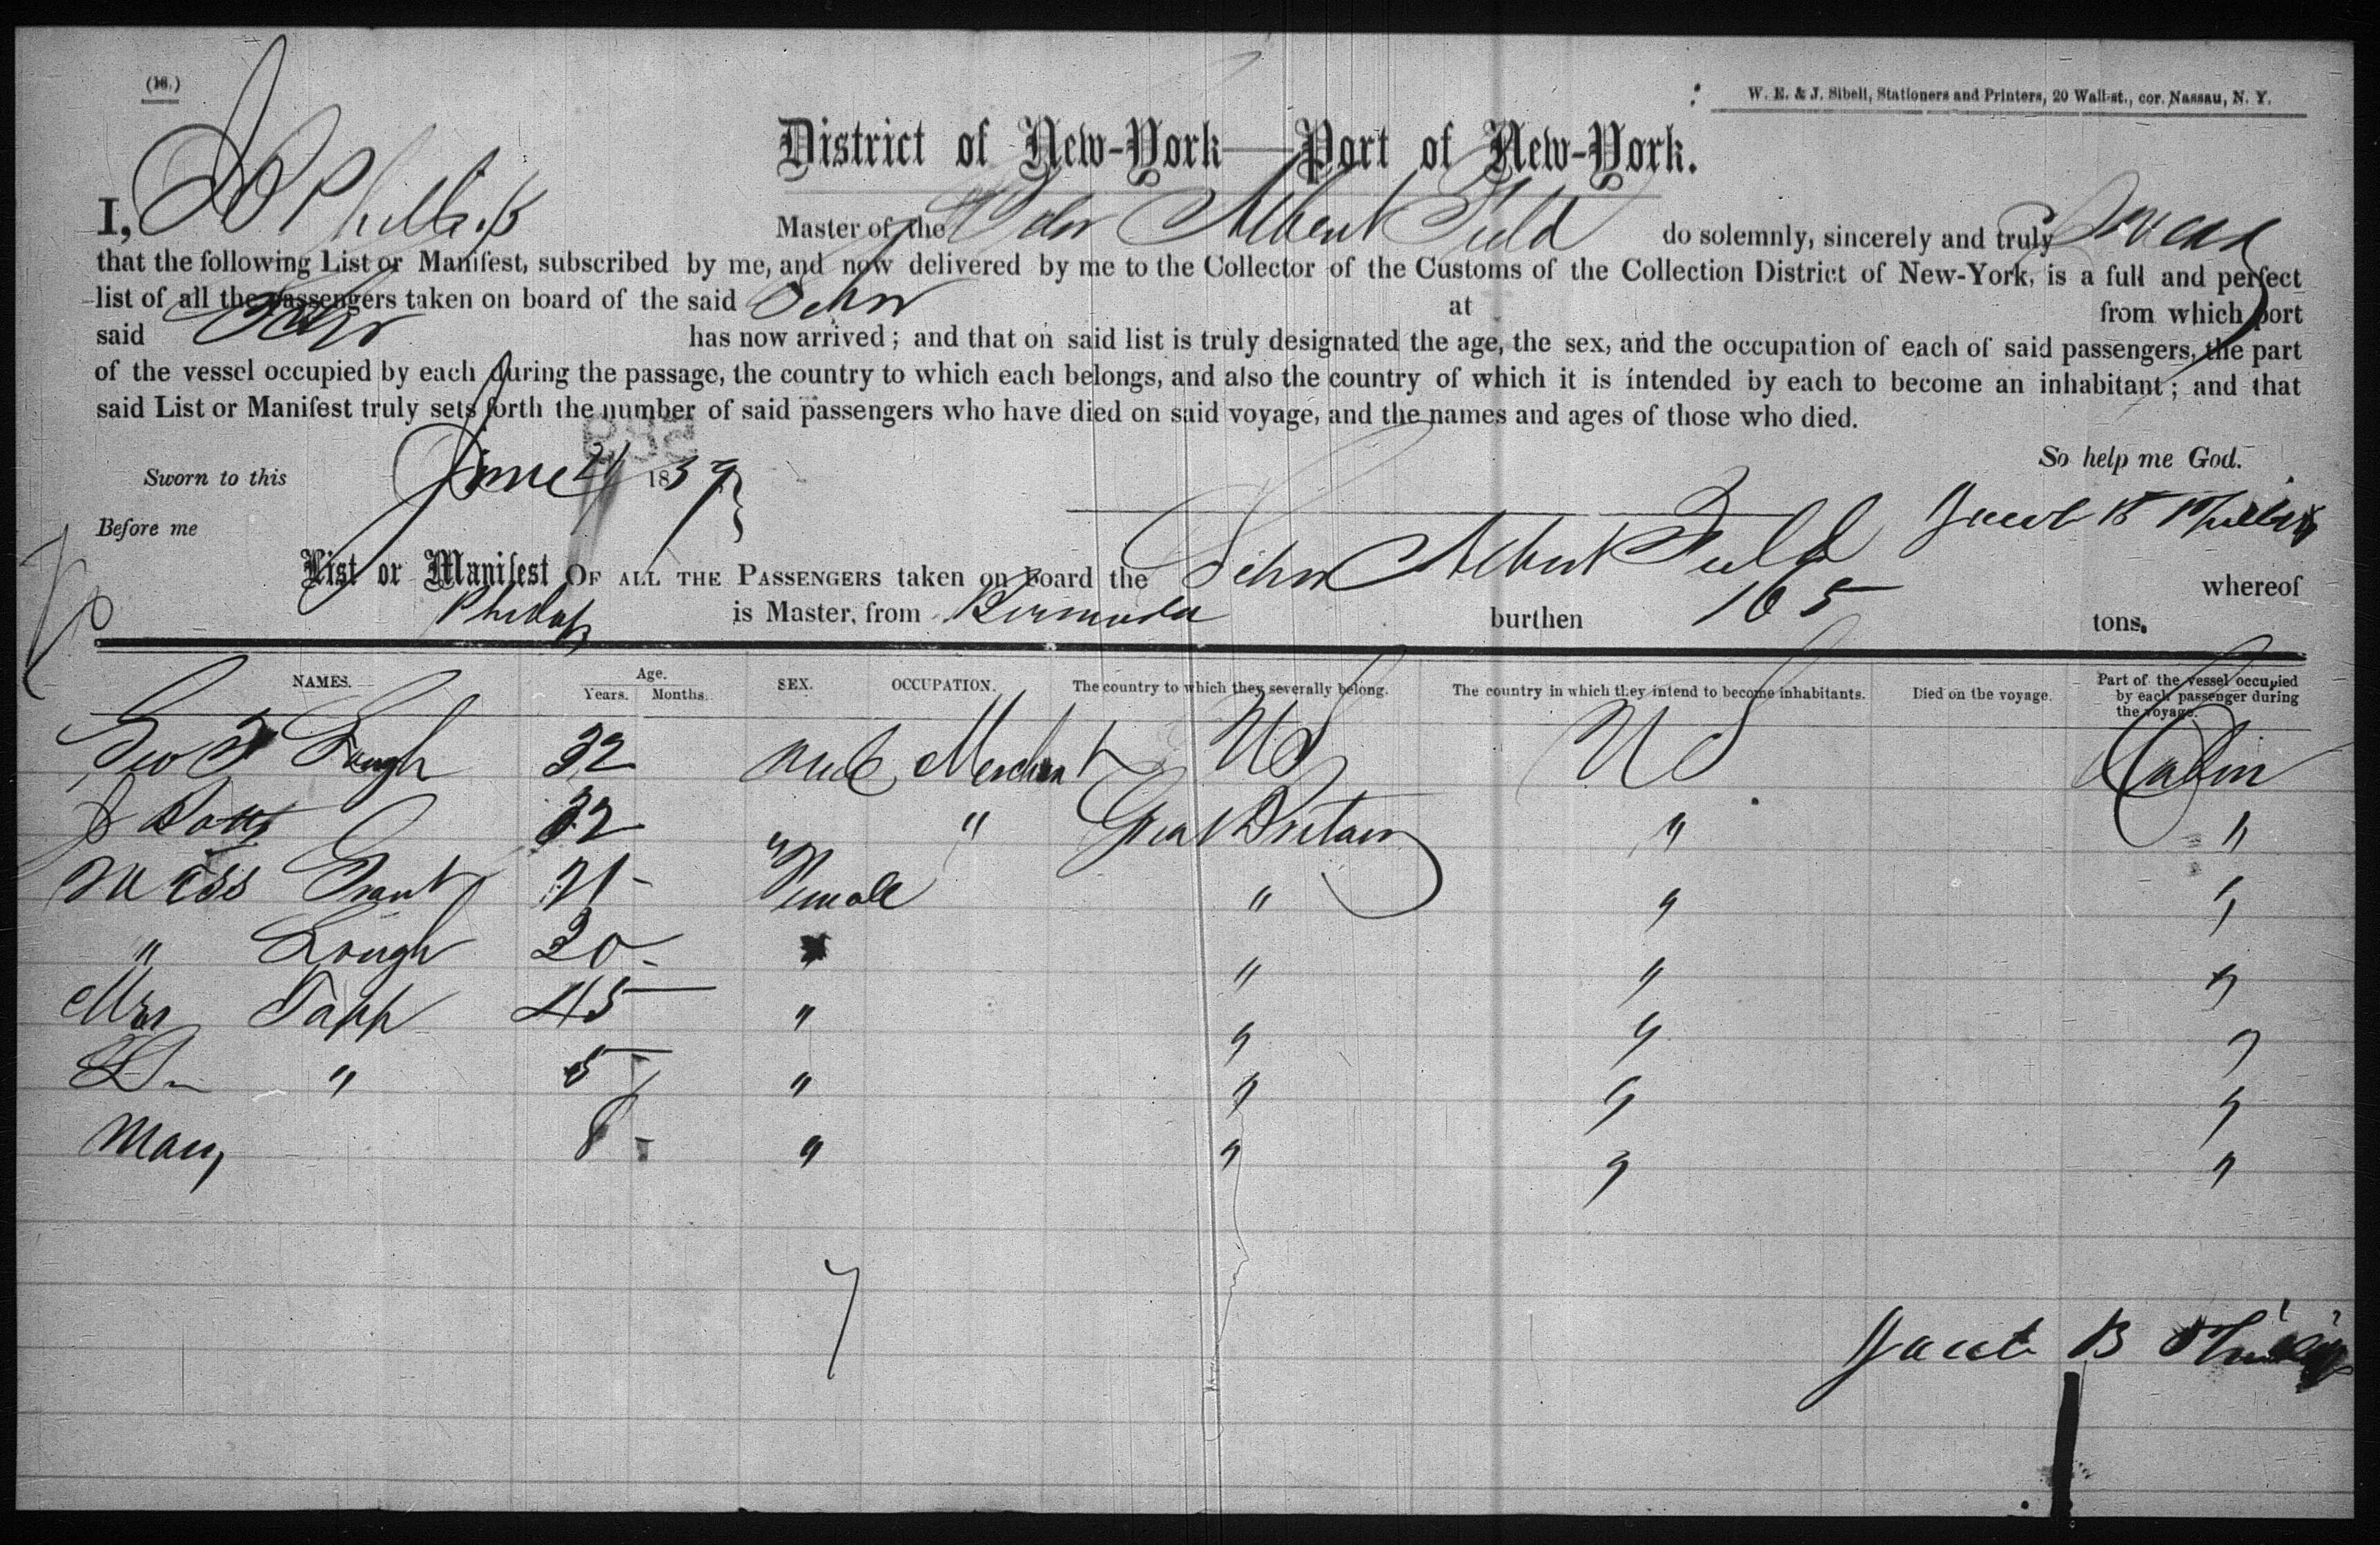 (16.)
W. E. & J. Sibell, Stationers and Printers, 20 Wall-st., cor. Nassau, N. Y.
District of New-York—Port of New-York.
I, J B Phillips Master of the Schr Albert Field do solemnly, sincerely and truly Swear
that the following List or Manifest, subscribed by me, and now delivered by me to the Collector of the Customs of the Collection District of New-York, is a full and perfect
list of all the passengers taken on board of the said Schr at from which port
said Schr has now arrived; and that on said list is truly designated the age, the sex, and the occupation of each of said passengers, the part
of the vessel occupied by each during the passage, the country to which each belongs, and also the country of which it is intended by each to become an inhabitant; and that
said List or Manifest truly sets forth the number of said passengers who have died on said voyage, and the names and ages of those who died.
So help me God.
Sworn to this June 21 1859
Before me
Jacob B Phillips
List or Manifest OF ALL THE PASSENGERS taken on board the Schr Albert Field whereof
Phillips is Master, from Bermuda burthen 165 tons.
NAMES. Age. Years. Months. SEX. OCCUPATION. The country to which they severally belong. The country in which they intend to become inhabitants. Died on the voyage. Part of the vessel occupied by each passenger during the voyage.
Geo F Lough 32 Male Merchant US US Cabin
J 32 " " Great Britain " "
Miss Grant 21 - Female " " "
" Lough 20 - " " "
Mrs Tapp 45 " " " "
" 5 " " " "
Mary 8 - " " " "
7
Jacob B Phillips